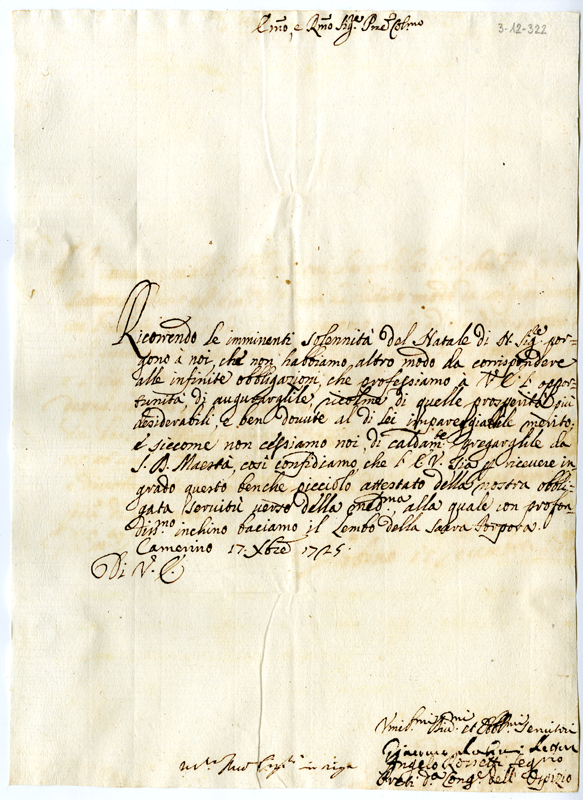 Em̃o, e Rm̃o Sig.re Pne Col.mo
3-12-322
Ricorrendo le imminenti solennità del Natale di N. Sig.re por=
gono a noi, che non habbiamo altro modo da corrispondere
alle infinite obbligazioni, che professiamo a V. E. l'oppor=
tunità di augurargliele ricolme di quelle prosperità più
desiderabili, e ben dovute al di lei impareggiabile merito;
E siccome non cessiamo noi di caldam.te pregargliele da
S. D. Maestà, così confidiamo, che l'E. V. sia p ricevere in
grado questo benche picciolo attestato della nostra obbli=
gata servitù verso della med.ma, alla quale con profon=
diss.mo inchino baciamo il lembo della sacra Porpora.
Camerino 17. Xbre 1725.
Di V. E.
Vmil.mi Div.mi et Obb.mi Servitori
Angelo
Preti d.a Cong.e dell'Ospizio